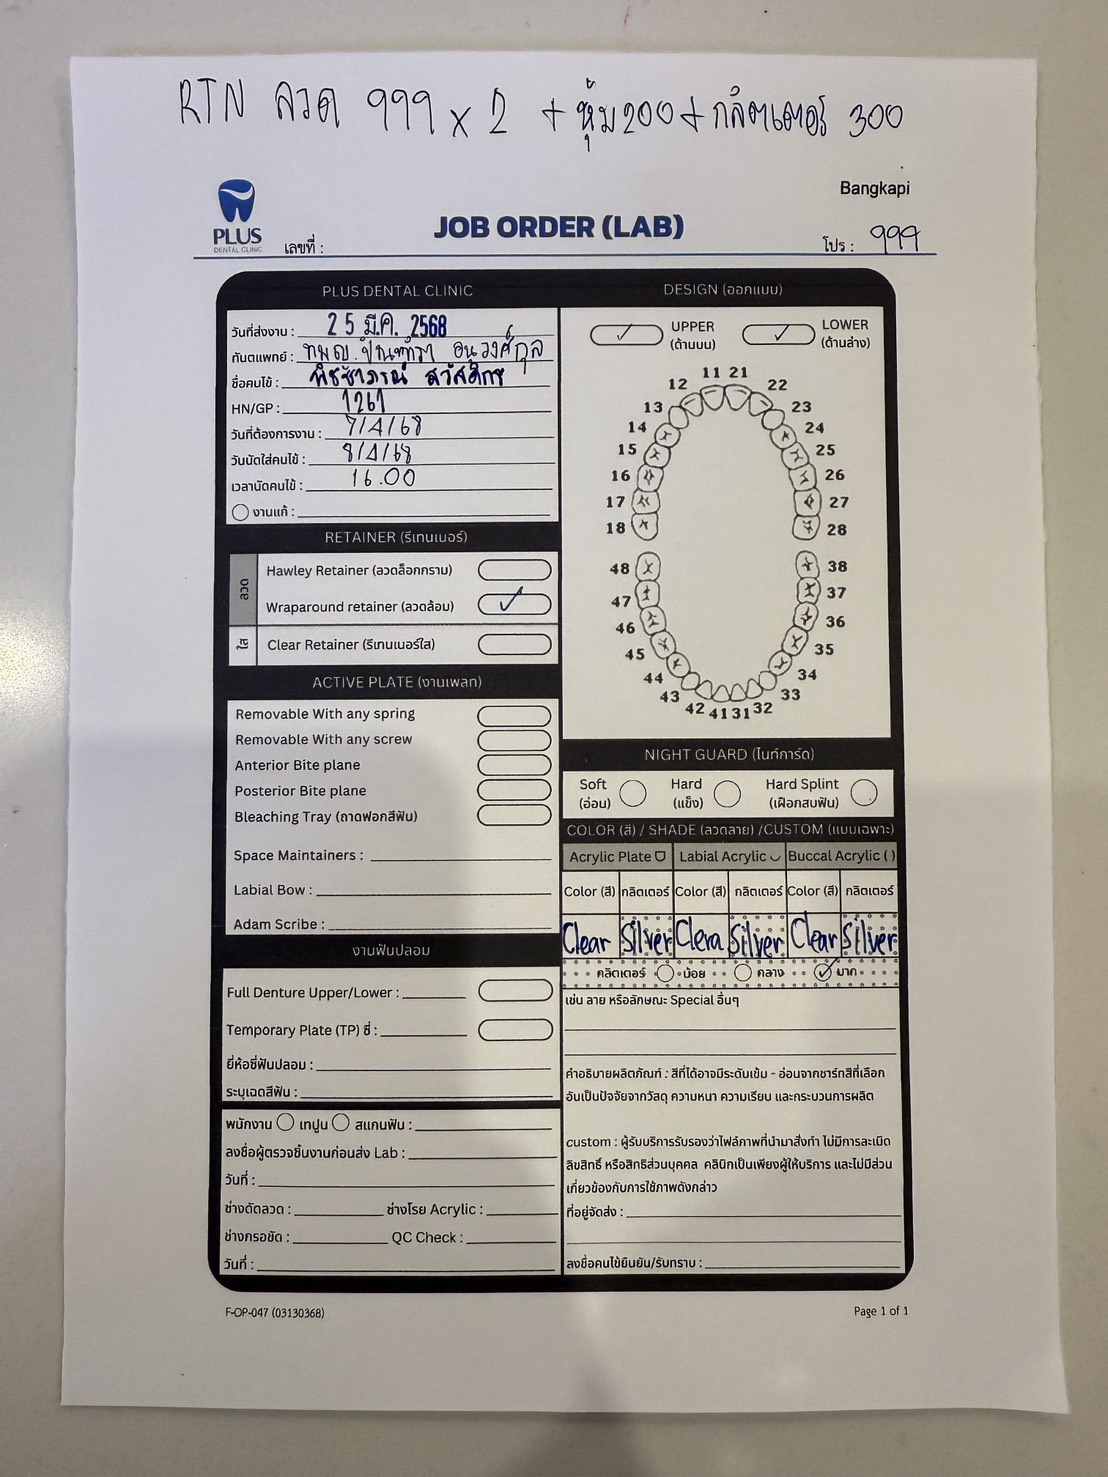 RTN ลวด 999 x 2 + หุ้ม 200 + กลิตเตอร์ 300
Bangkapi
PLUS
DENTAL CLINIC
JOB ORDER (LAB)
เลขที่ :
โปร : 999
PLUS DENTAL CLINIC
วันที่ส่งงาน : 25 มี.ค. 2568
ทันตแพทย์ : ทพญ.
ชื่อคนไข้ :
HN/GP : 1261
วันที่ต้องการงาน : 7/4/68
วันนัดใส่คนไข้ : 8/4/68
เวลานัดคนไข้ : 16.00
งานแก้ :
RETAINER (รีเทนเนอร์)
ลวด
Hawley Retainer (ลวดล็อกกราม)
Wraparound retainer (ลวดล้อม) ✓
ใส
Clear Retainer (รีเทนเนอร์ใส)
ACTIVE PLATE (งานเพลท)
Removable With any spring
Removable With any screw
Anterior Bite plane
Posterior Bite plane
Bleaching Tray (ถาดฟอกสีฟัน)
Space Maintainers :
Labial Bow :
Adam Scribe :
งานฟันปลอม
Full Denture Upper/Lower :
Temporary Plate (TP) ซี่ :
ยี่ห้อซี่ฟันปลอม :
ระบุเฉดสีฟัน :
พนักงาน เทปูน สแกนฟัน :
ลงชื่อผู้ตรวจชิ้นงานก่อนส่ง Lab :
วันที่ :
ช่างดัดลวด : ช่างโรย Acrylic :
ช่างกรอขัด : QC Check :
วันที่ :
DESIGN (ออกแบบ)
✓ UPPER ✓ LOWER
(ด้านบน) (ด้านล่าง)
11 21
12 22
13 23
14 24
15 25
16 26
17 27
18 28
48 38
47 37
46 36
45 35
44 34
43 33
42 41 31 32
NIGHT GUARD (ไนท์การ์ด)
Soft Hard Hard Splint
(อ่อน) (แข็ง) (เฝือกสบฟัน)
COLOR (สี) / SHADE (ลวดลาย) /CUSTOM (แบบเฉพาะ)
Acrylic Plate Labial Acrylic Buccal Acrylic ( )
Color (สี) กลิตเตอร์ Color (สี) กลิตเตอร์ Color (สี) กลิตเตอร์
Clear Silver Clera Silver Clear Silver
กลิตเตอร์ น้อย กลาง ✓ มาก
เช่น ลาย หรือลักษณะ Special อื่นๆ
คำอธิบายผลิตภัณฑ์ : สีที่ได้อาจมีระดับเข้ม - อ่อนจากชาร์ทสีที่เลือก
อันเป็นปัจจัยจากวัสดุ ความหนา ความเรียบ และกระบวนการผลิต
custom : ผู้รับบริการรับรองว่าไฟล์ภาพที่นำมาสั่งทำ ไม่มีการละเมิด
ลิขสิทธิ์ หรือสิทธิส่วนบุคคล คลินิกเป็นเพียงผู้ให้บริการ และไม่มีส่วน
เกี่ยวข้องกับการใช้ภาพดังกล่าว
ที่อยู่จัดส่ง :
ลงชื่อคนไข้ยืนยัน/รับทราบ :
F-OP-047 (03130368)
Page 1 of 1